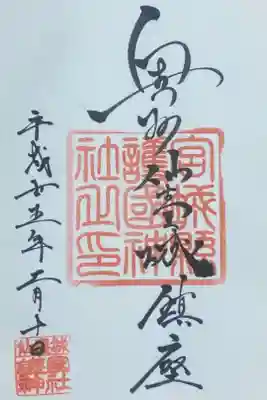 奥州仙臺城鎮座
宮城縣
護國神
社之印
平成廿五年二月十日